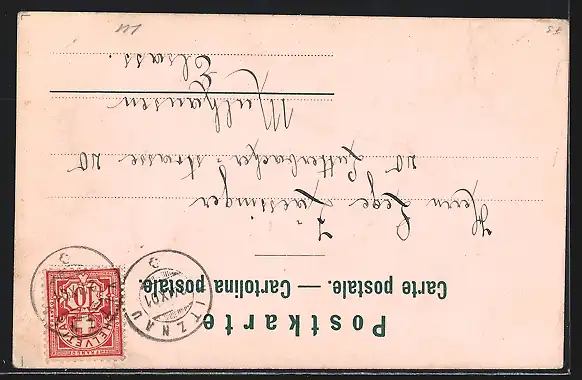 Postkarte
Carte postale. — Cartolina postale.
Herrn Lege
Züssinger
20 Lutterbacher-strasse 20
Mulhausen
Elsass.
HELVETIA
10
VITZNAU
IX.01